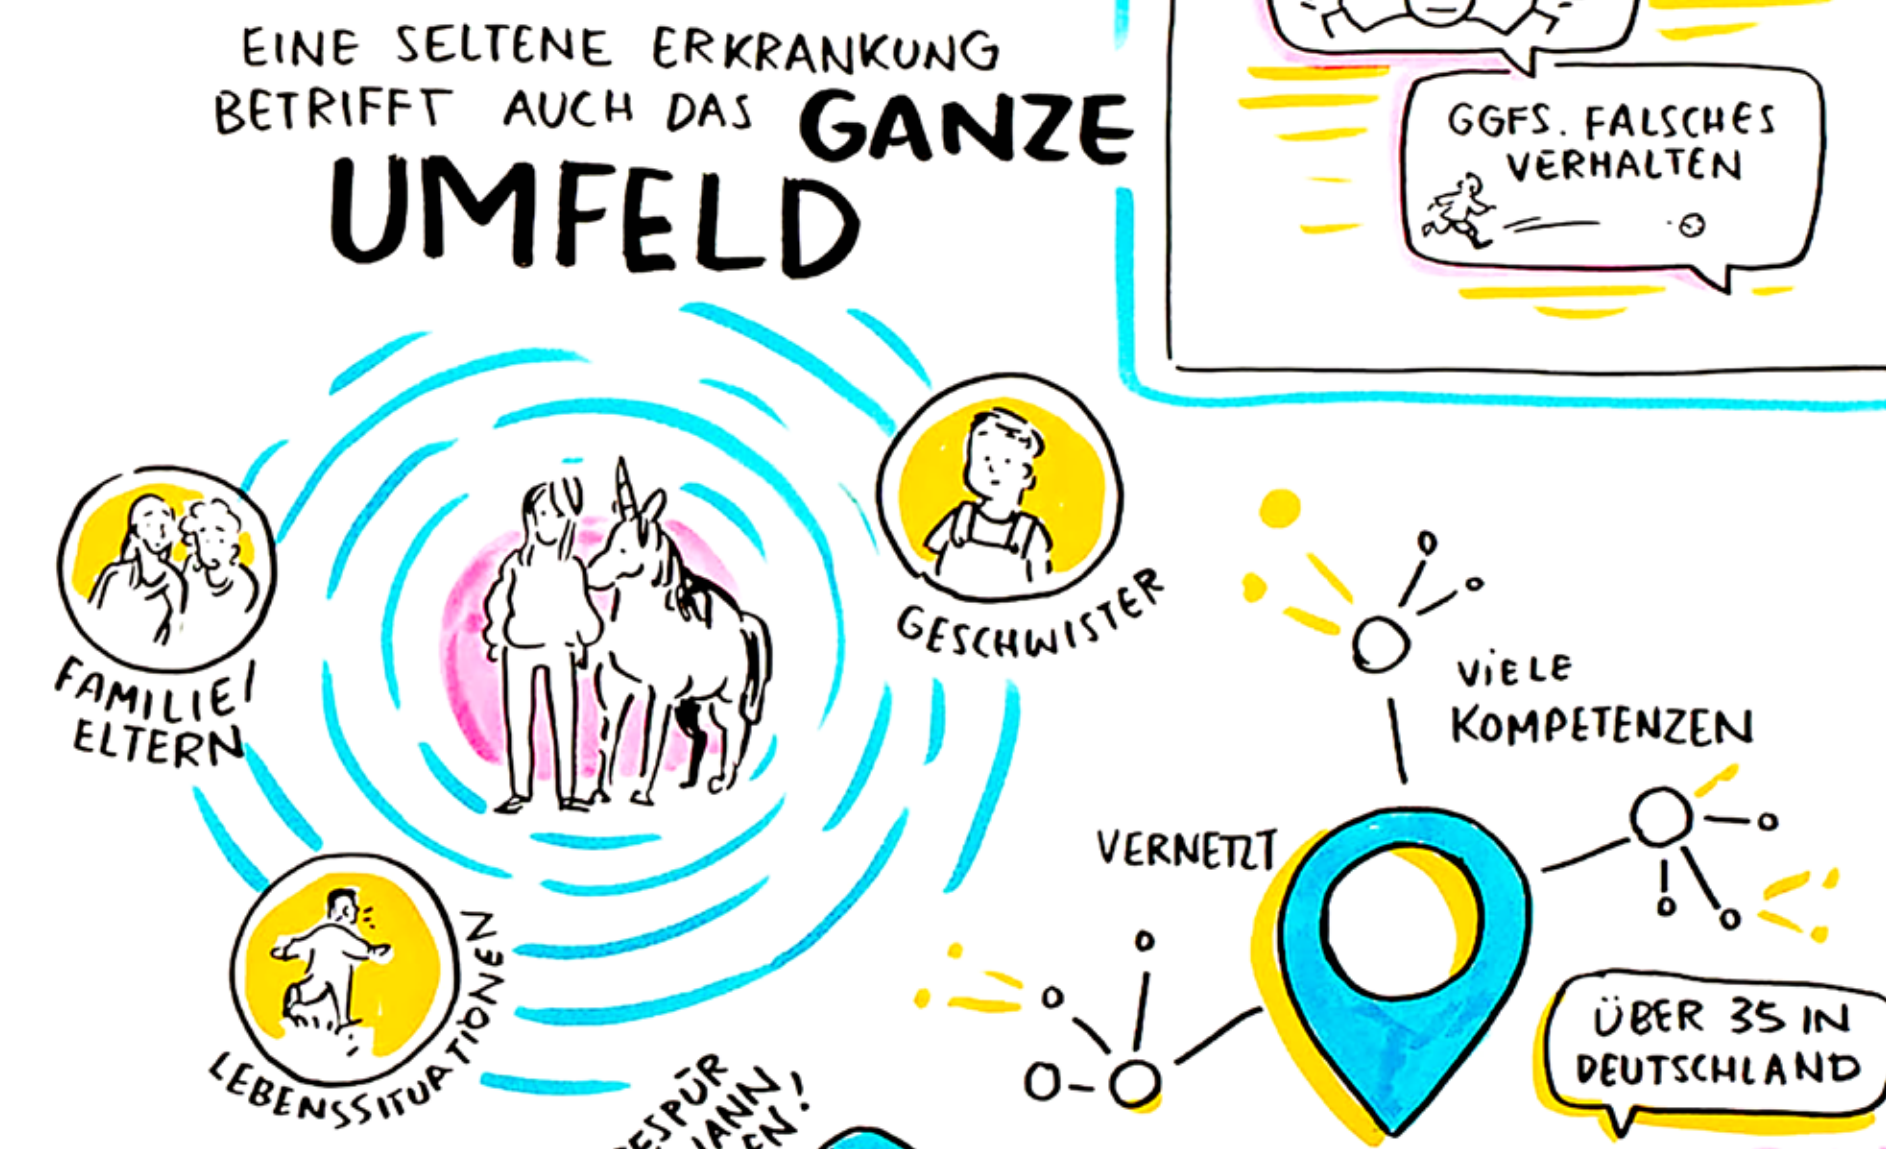 EINE SELTENE ERKRANKUNG
BETRIFFT AUCH DAS GANZE
UMFELD
GGFS. FALSCHES
VERHALTEN
FAMILIE/
ELTERN
GESCHWISTER
LEBENSSITUATIONEN
VIELE
KOMPETENZEN
VERNETZT
ÜBER 35 IN
DEUTSCHLAND